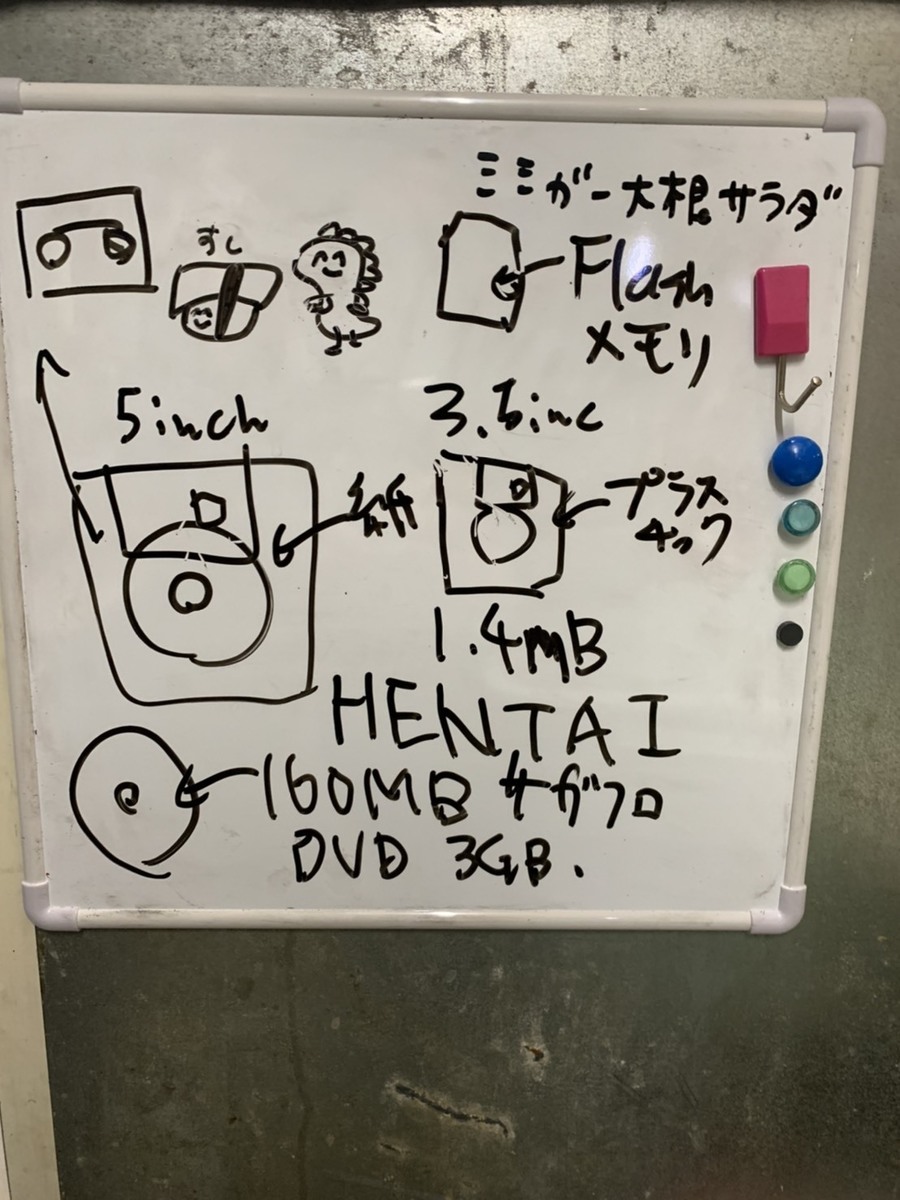 ミミガー大根サラダ
すし
Flash
メモリ
5inch
3.5inc
紙
プラス
チック
1.4mB
HENTAI
160MB サガフロ
DVD 3GB.